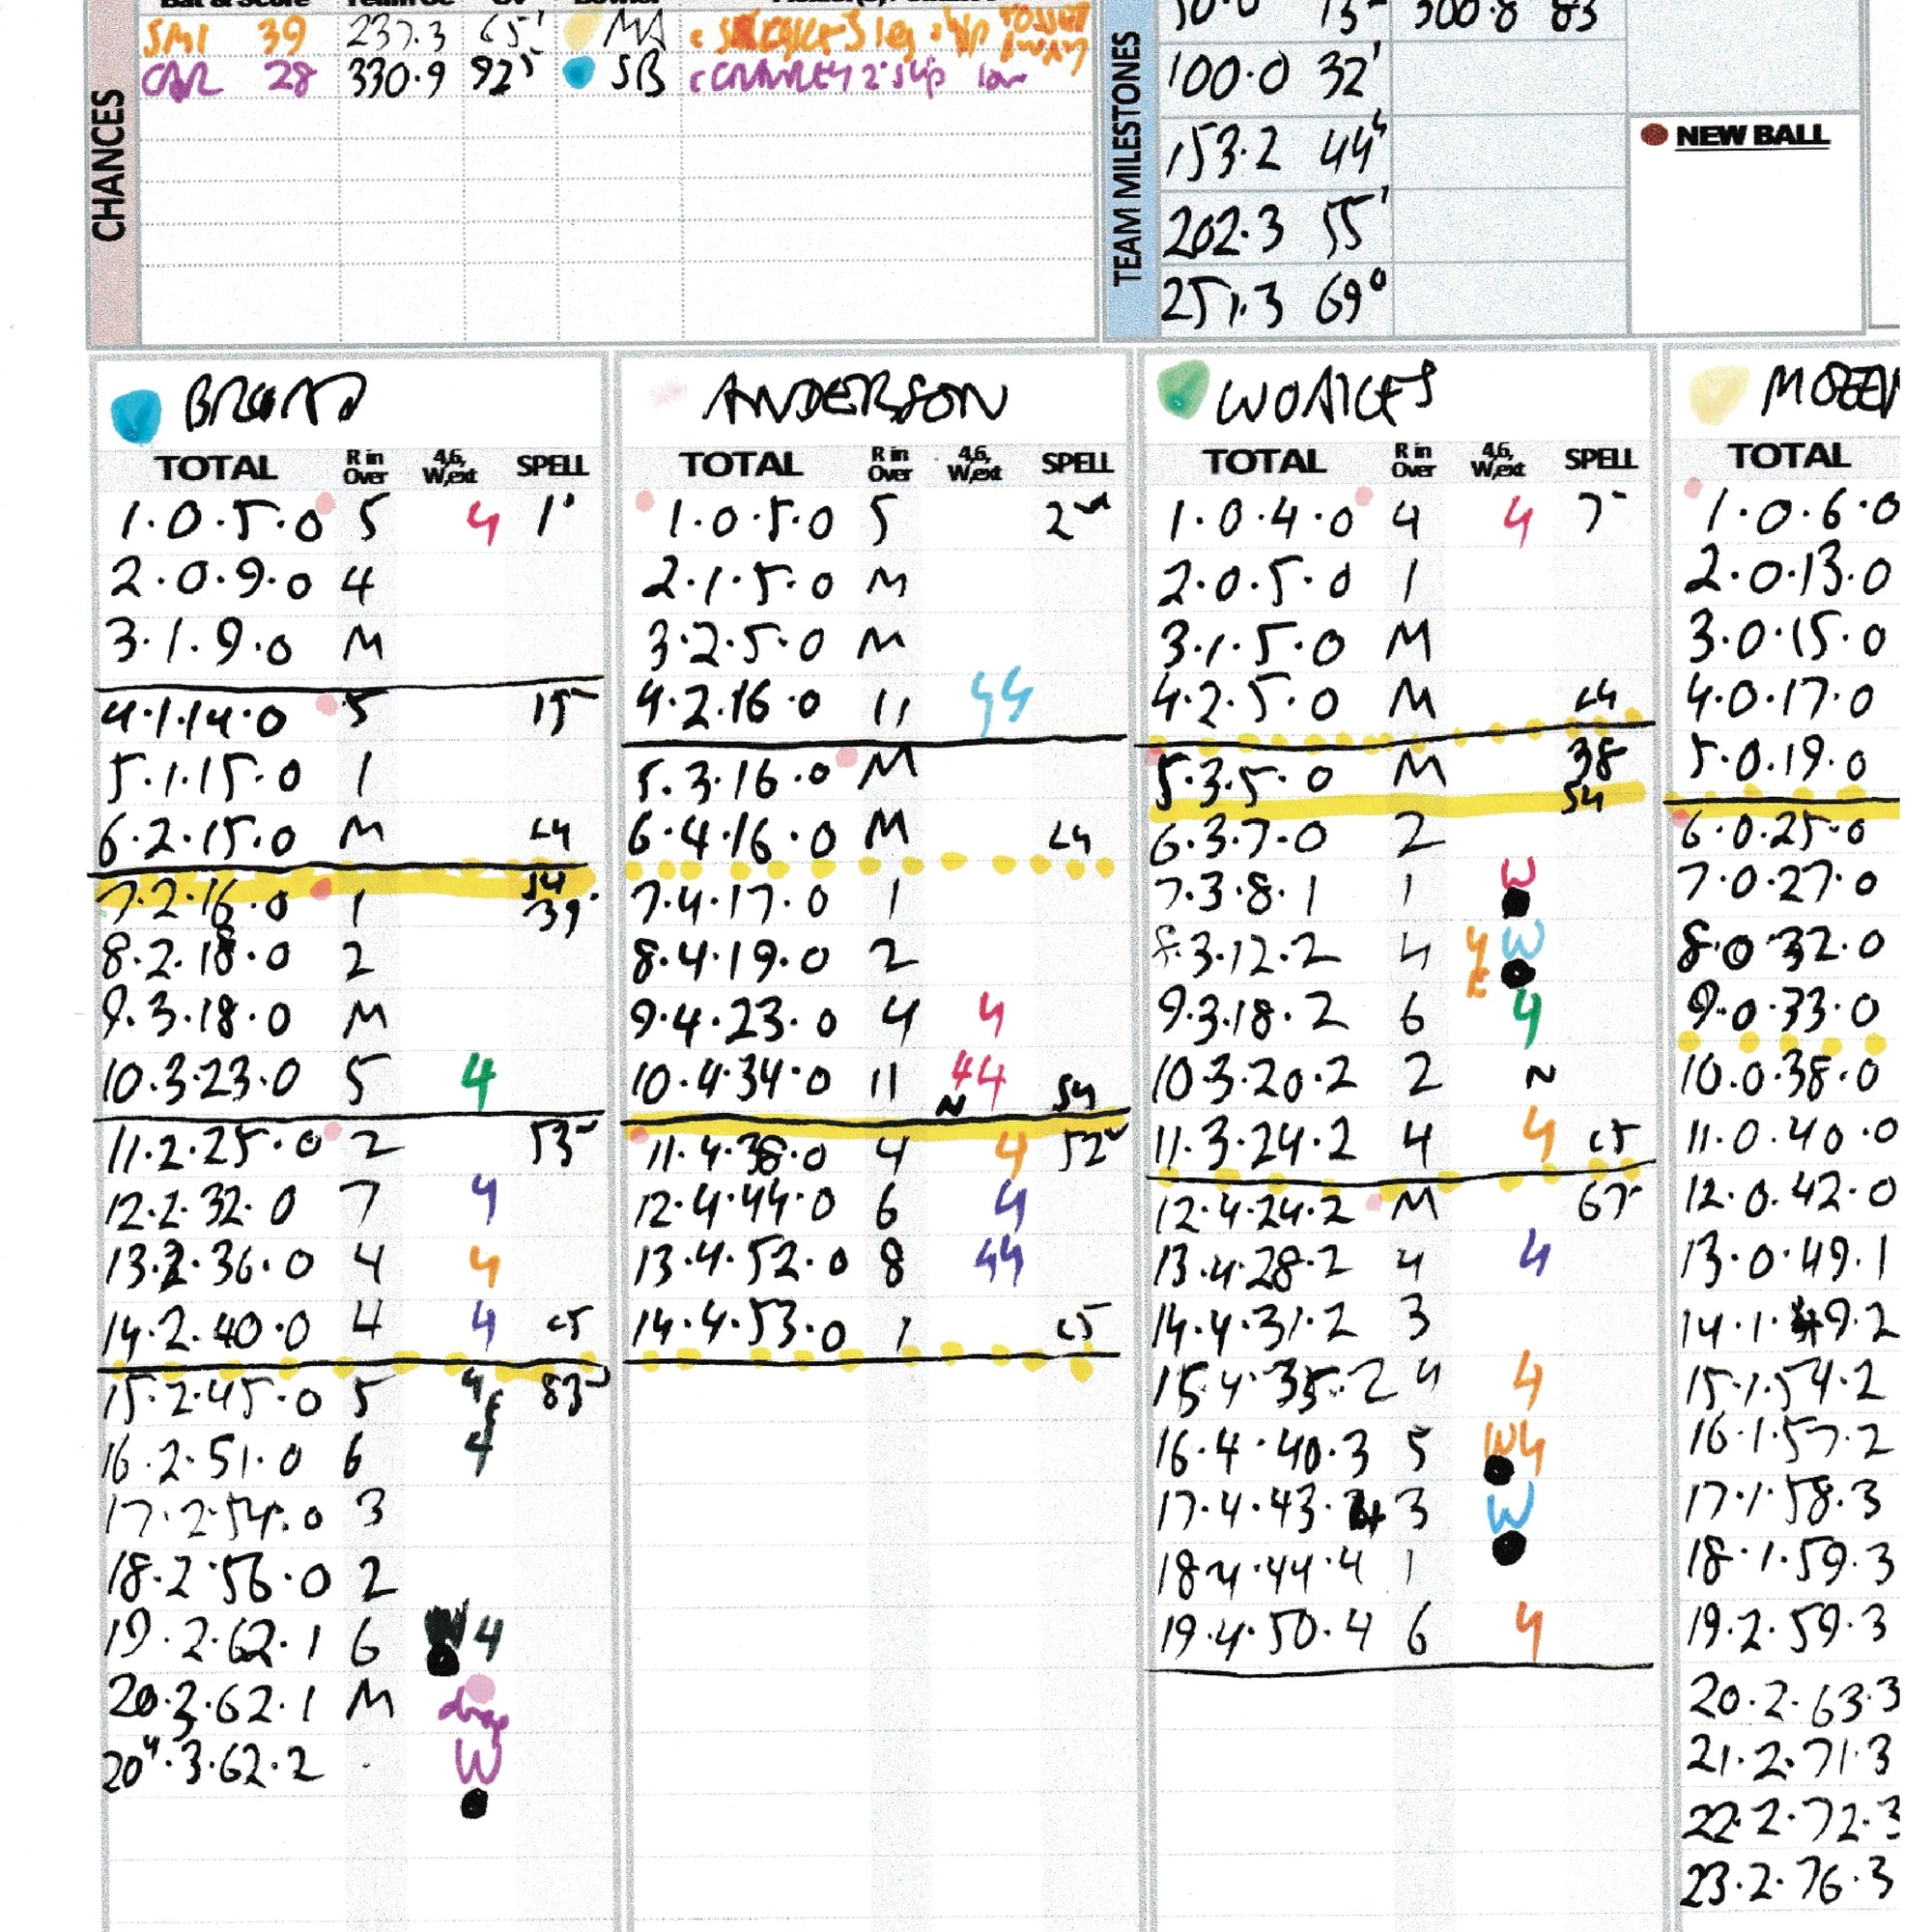 SMI 39 237.3 65' MA
28 330.9 92⁵ SB c CRAWLEY 2 slip low
CHANCES
TEAM MILESTONES
100.0 32'
153.2 44⁵
202.3 55'
251.3 69⁰
300.8 83
NEW BALL
BROAD
TOTAL R in Over 4,6, W,ext SPELL
1.0.5.0 5 4 1'
2.0.9.0 4
3.1.9.0 M
4.1.14.0 5 15
5.1.15.0 1
6.2.15.0 M L4
7.2.16.0 1 S4 39
8.2.18.0 2
9.3.18.0 M
10.3.23.0 5 4
11.2.25.0 2 53
12.2.32.0 7 4
13.2.36.0 4 4
14.2.40.0 4 4 L5
15.2.45.0 5 4 83
16.2.51.0 6 4
17.2.54.0 3
18.2.56.0 2
19.2.62.1 6 W 4
20.3.62.1 M drop
20⁴.3.62.2 . W
ANDERSON
TOTAL R in Over 4,6, W,ext SPELL
1.0.5.0 5 2nd
2.1.5.0 M
3.2.5.0 M
4.2.16.0 11 44
5.3.16.0 M
6.4.16.0 M L4
7.4.17.0 1
8.4.19.0 2
9.4.23.0 4 4
10.4.34.0 11 44 N S4
11.4.38.0 4 4 52
12.4.44.0 6 4
13.4.52.0 8 44
14.4.53.0 1 L5
WOAKES
TOTAL R in Over 4,6, W,ext SPELL
1.0.4.0 4 4 7
2.0.5.0 1
3.1.5.0 M
4.2.5.0 M L4
5.3.5.0 M 38 S4
6.3.7.0 2
7.3.8.1 1 W
8.3.12.2 4 4 W
9.3.18.2 6 4
10.3.20.2 2 N
11.3.24.2 4 4 L5
12.4.24.2 M 67
13.4.28.2 4 4
14.4.31.2 3
15.4.35.2 4 4
16.4.40.3 5 W4
17.4.43.4 3 W
18.4.44.4 1
19.4.50.4 6 4
MOEEN
TOTAL
1.0.6.0
2.0.13.0
3.0.15.0
4.0.17.0
5.0.19.0
6.0.25.0
7.0.27.0
8.0.32.0
9.0.33.0
10.0.38.0
11.0.40.0
12.0.42.0
13.0.49.1
14.1.49.2
15.1.54.2
16.1.57.2
17.1.58.3
18.1.59.3
19.2.59.3
20.2.63.3
21.2.71.3
22.2.72.3
23.2.76.3